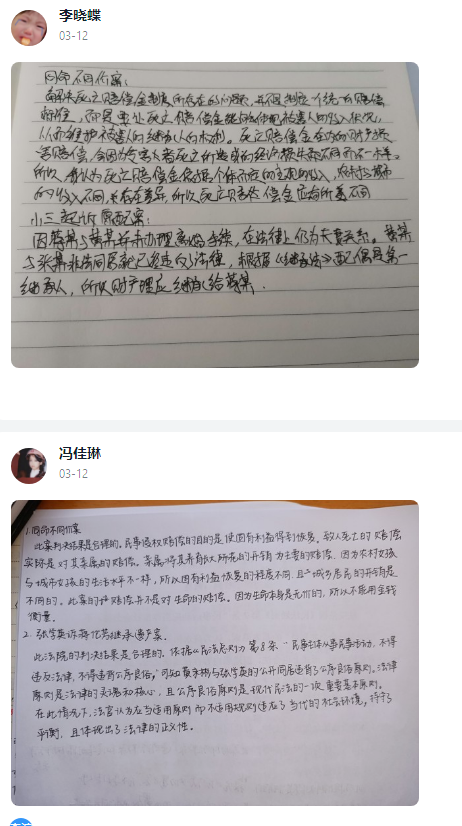 李晓蝶
03-12
同命不同价案:
解决死亡赔偿金制度所存在的问题,并不是制定一个统一的赔偿
标准,而是要让死亡赔偿金能够体现被害人的收入状况,
从而维护被害人的继承人的权利。死亡赔偿金在内的财产损
害赔偿,会因为受害者死亡所造成的经济损失不同而不一样。
所以
的收入不同,所以死亡赔偿金应有所差不同
小三
因蒋某与黄某并未办理离婚手续,在法律上仍为夫妻关系。黄某
与张某非法同居就已经违反了法律,根据《继承法》配偶是第一
继承人,所以财产理应继承给蒋某.
冯佳琳
03-12
1.同命不同价案
此案判决结果是合理的。民事侵权赔偿的目的是使固有利益得到恢复,致人死亡的赔偿
实际是对其亲属的赔偿。亲属将其养育成人所花的开销为主要的赔偿,因为农村女孩
与城市女孩的生活水平不一样,所以固有利益恢复的程度不同,且城乡居民的开销是
不同的。此案的评赔偿并不是对生命的赔偿。因为生命本身是无价的,所以不能用金钱
衡量.
2. 张学英诉蒋伦芳继承遗产案.
此法院的判决结果是合理的.依据《民法总则》第8条“民事主体从事民事活动,不得
违反法律,不得违背公序良俗。”可知黄永彬与张学英的公开同居违背了公序良俗原则。法律
原则是法律的灵魂和核心,且公序良俗原则是现代民法的一项重要基本原则。
在此情况下,法官认为应当适用原则而不适用规则适应了当代的社会环境,
平衡,且体现出了法律的正义性。